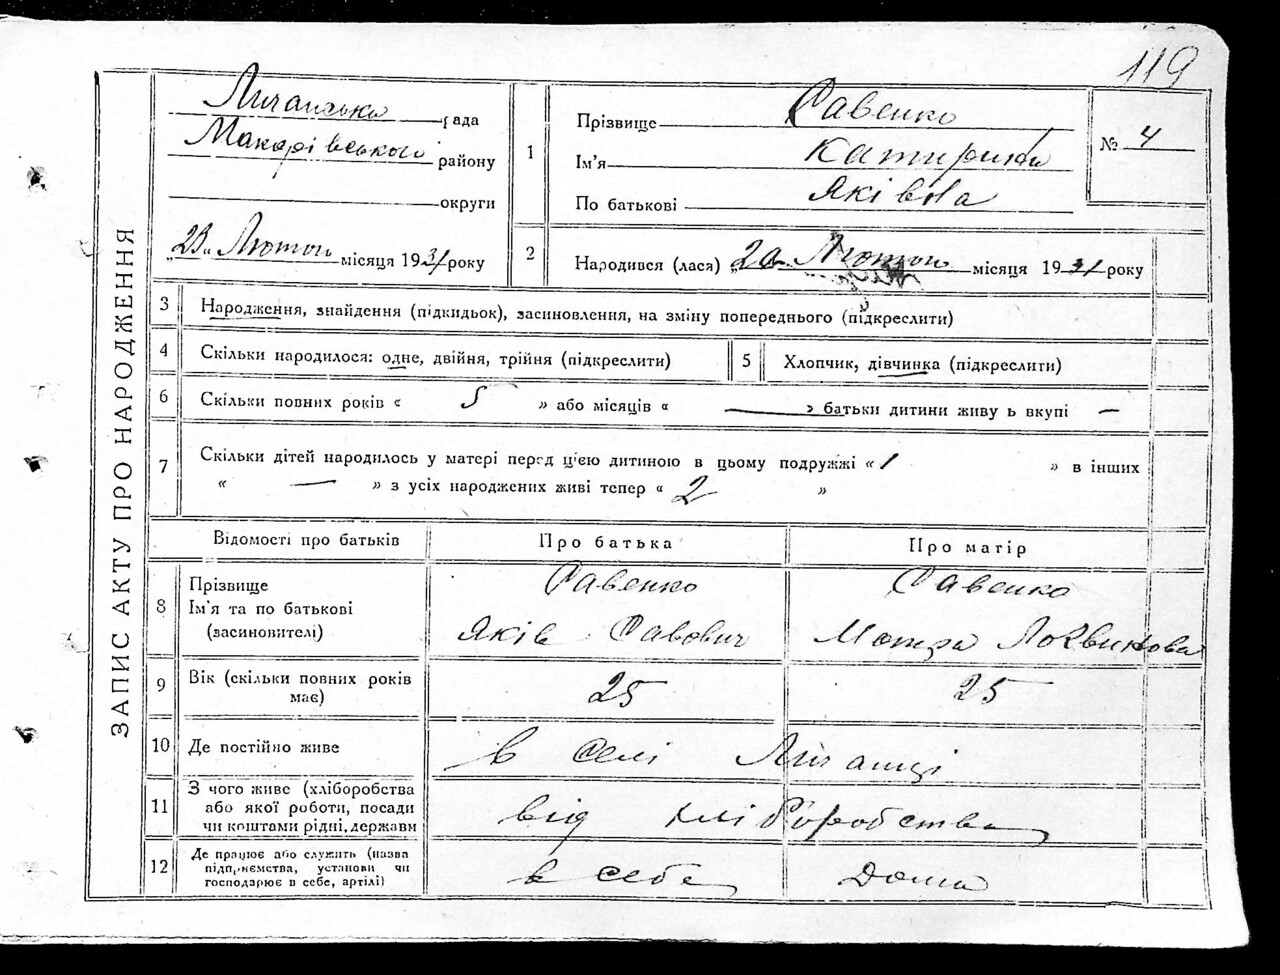 119
ЗАПИС АКТУ ПРО НАРОДЖЕННЯ
Личанська рада
Макарівського району
округи
„23„ Лютого місяця 1931 року
1 Прізвище Савенко
Ім'я Катирина
По батькові Яківна
№ 4
2 Народився (лася) „20 Лютого місяця 1931 року
3 Народження, знайдення (підкидьок), засиновлення, на зміну попереднього (підкреслити)
4 Скільки народилося: одне, двійня, трійня (підкреслити)
5 Хлопчик, дівчинка (підкреслити)
6 Скільки повних років « 5 » або місяців « — » батьки дитини живу ь вкупі —
7 Скільки дітей народилось у матері перед цією дитиною в цьому подружжі « 1 » в інших
« — » з усіх народжених живі тепер « 2 »
Відомості про батьків Про батька Про матір
8 Прізвище Савенко Савенко
Ім'я та по батькові Яків Савович Мотря
(засиновителі)
9 Вік (скільки повних років 25 25
має)
10 Де постійно живе в селі Личанці
11 З чого живе (хліборобства
або якої роботи, посади від хліборобства
чи коштами рідні, держави
12 Де працює або служить (назва
підприємства, установи чи в себе дома
господарює в себе, артілі)